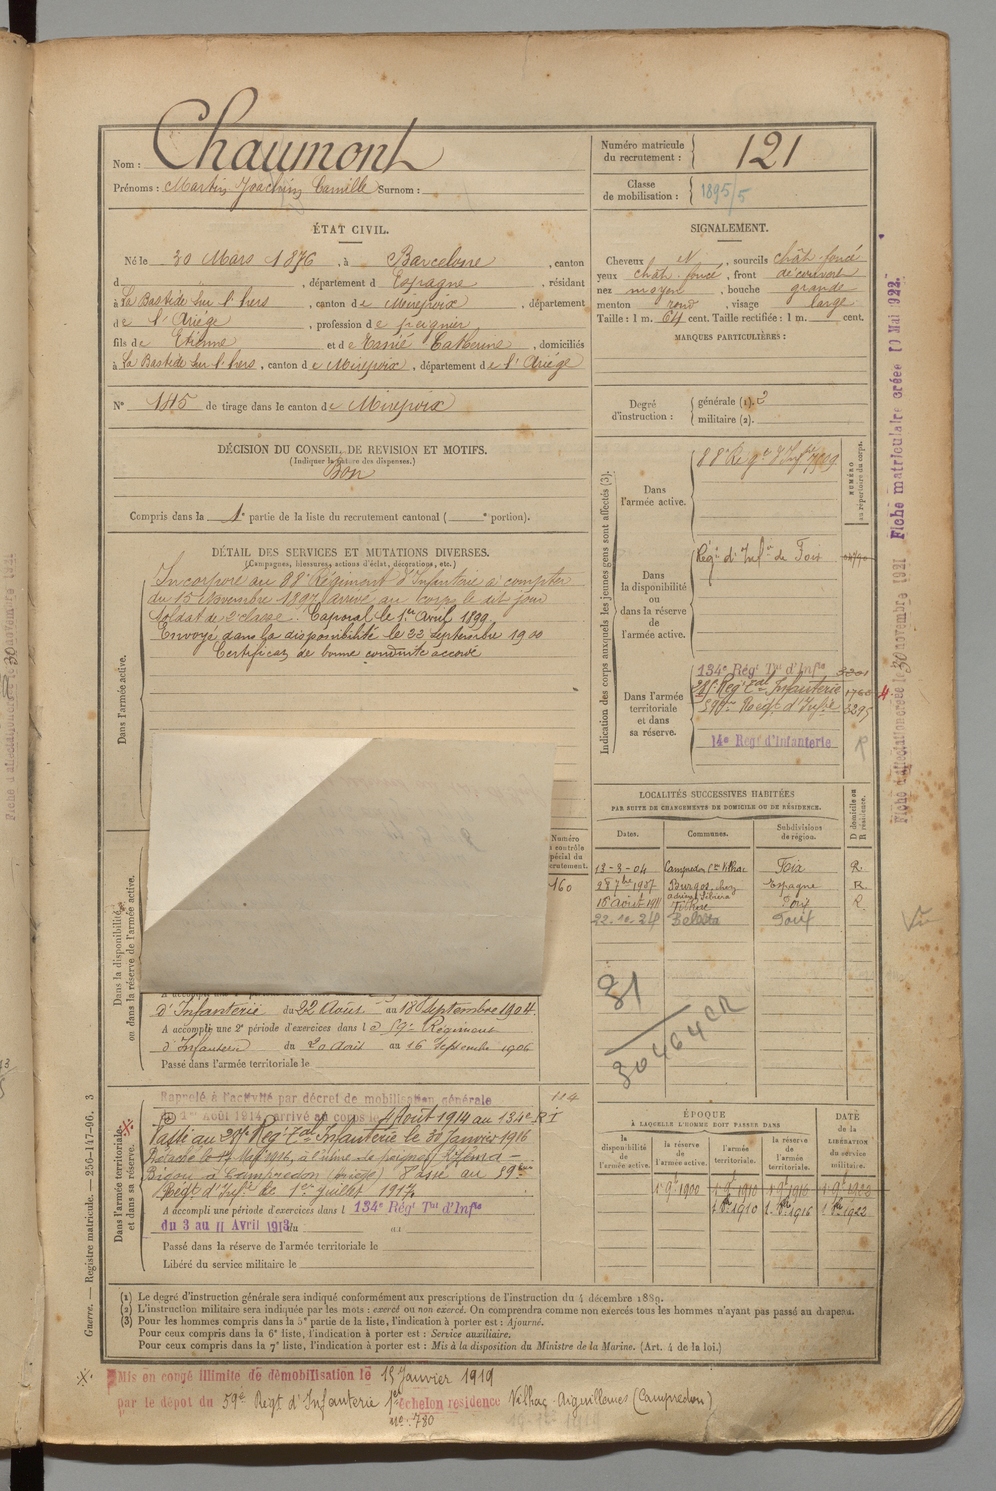 Nom : Chaumont
Prénoms : Martin Joachim Camille Surnom :
Numéro matricule du recrutement : 121
Classe de mobilisation : 1895/5
ÉTAT CIVIL.
Né le 30 Mars 1876, à Barcelone, canton
d , département d Espagne, résidant
à La Bastide sur l'hers, canton de Mirepoix, département
de l'Ariége, profession de peignier
fils de Etienne et de Catherine, domiciliés
à La Bastide sur l'hers, canton de Mirepoix, département de l'Ariége
N° 145 de tirage dans le canton de Mirepoix
SIGNALEMENT.
Cheveux N, sourcils chât. foncé
yeux chât. foncé, front découvert
nez moyen, bouche grande
menton rond, visage large
Taille : 1 m. 64 cent. Taille rectifiée : 1 m. cent.
MARQUES PARTICULIÈRES :
Degré d'instruction : générale (1). 2
militaire (2).
DÉCISION DU CONSEIL DE REVISION ET MOTIFS.
(Indiquer la nature des dispenses.)
Bon
Compris dans la 1e partie de la liste du recrutement cantonal ( e portion).
DÉTAIL DES SERVICES ET MUTATIONS DIVERSES.
(Campagnes, blessures, actions d'éclat, décorations, etc.)
Dans l'armée active.
Incorporé au 88e Régiment d'Infanterie à compter
du 15 Novembre 1897, arrivé au corps le dit jour
Soldat de 2e classe. Caporal le 1er Avril 1899
Envoyé dans la disponibilité le 22 Septembre 1900
Certificat de bonne conduite accordé
Indication des corps auxquels les jeunes gens sont affectés (3).
NUMÉRO au répertoire du corps.
Dans l'armée active.
88e Regt d'Inf
Dans la disponibilité ou dans la réserve de l'armée active.
Régt d'Infie de Foix
Dans l'armée territoriale et dans sa réserve.
134e Régt Tal d'Infie
Regt Tal Infanterie 1760
59me Regt d'Infie 3295
14e Regt d'Infanterie R
LOCALITÉS SUCCESSIVES HABITÉES
PAR SUITE DE CHANGEMENTS DE DOMICILE OU DE RÉSIDENCE.
Dates. Communes. Subdivisions de région. D domicile ou R résidence.
13-3-04 Campredon Cne Vilhac Foix R
28 7bre 1907 Burgos, chez Espagne R
16 Août 1911 Foix R
22-10-24 Foix
31
30464 CR
Vu
Dans la disponibilité ou dans la réserve de l'armée active.
Numéro
contrôle
spécial du
recrutement.
160
d'Infanterie du 22 Août au 18 Septembre 1904.
A accompli une 2e période d'exercices dans l e 59e Régiment
d'Infanterie du 20 Août au 16 Septembre 1906
Passé dans l'armée territoriale le
Dans l'armée territoriale et dans sa réserve.
Rappelé à l'activité par décret de mobilisation générale
du 1er Août 1914, arrivé au corps le 4 Août 1914 au 134e R.I
Passé au Regt Tal Infanterie le 30 Janvier 1916
Détaché le Mai 1916, à l'usine de peignes Azéma-
Bigou à Campredon (Ariège) Passé au 59ème
Regt d'Infie le 1er juillet 1917.
A accompli une période d'exercices dans l 134e Régt Tal d'Infie
du 3 au 11 Avril 1913 du au
Passé dans la réserve de l'armée territoriale le
Libéré du service militaire le
ÉPOQUE
À LAQUELLE L'HOMME DOIT PASSER DANS
la disponibilité de l'armée active. la réserve de l'armée active. l'armée territoriale. la réserve de l'armée territoriale.
DATE de la LIBÉRATION du service militaire.
1. 9bre 1900 1. 9bre 1910 1. 9bre 1916 1. 9bre 1922
1. 8bre 1910 1. 8bre 1916 1. 8bre 1922
(1) Le degré d'instruction générale sera indiqué conformément aux prescriptions de l'instruction du 4 décembre 1889.
(2) L'instruction militaire sera indiquée par les mots : exercé ou non exercé. On comprendra comme non exercés tous les hommes n'ayant pas passé au drapeau.
(3) Pour les hommes compris dans la 5e partie de la liste, l'indication à porter est : Ajourné.
Pour ceux compris dans la 6e liste, l'indication à porter est : Service auxiliaire.
Pour ceux compris dans la 7e liste, l'indication à porter est : Mis à la disposition du Ministre de la Marine. (Art. 4 de la loi.)
Mis en congé illimité de démobilisation le 15 Janvier 1919
par le dépôt du 59e Regt d'Infanterie 1er échelon résidence Vilhac Aiguillanes (Campredon)
no : 780
Guerre. — Registre matricule. — 256-147-96. 3
Fiche matriculaire créée 10 Mai 1922.
Fiche d'affectation créée le 30 novembre 1921